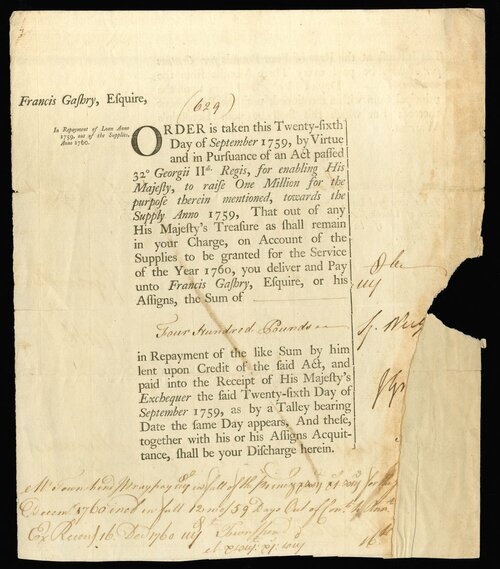 Francis Gaſhry, Eſquire,
(629)
In Repayment of Loan Anno
1759, out of the Supplies,
Anno 1760.
ORDER is taken this Twenty-ſixth
Day of September 1759, by Virtue
and in Purſuance of an Act paſſed
32° Georgii IIdi. Regis, for enabling His
Majeſty, to raiſe One Million for the
purpoſe therein mentioned, towards the
Supply Anno 1759, That out of any
His Majeſty's Treaſure as ſhall remain
in your Charge, on Account of the
Supplies to be granted for the Service
of the Year 1760, you deliver and Pay
unto Francis Gaſhry, Eſquire, or his
Aſſigns, the Sum of
Four Hundred Pounds
in Repayment of the like Sum by him
lent upon Credit of the ſaid Act, and
paid into the Receipt of His Majeſty's
Exchequer the ſaid Twenty-ſixth Day of
September 1759, as by a Talley bearing
Date the ſame Day appears, And theſe,
together with his or his Aſſigns Acquit-
tance, ſhall be your Diſcharge herein.
Mr Townshend pay in full of the
1760 in full 12 59 Days Out of
Ex Recend 16 Decr 1760